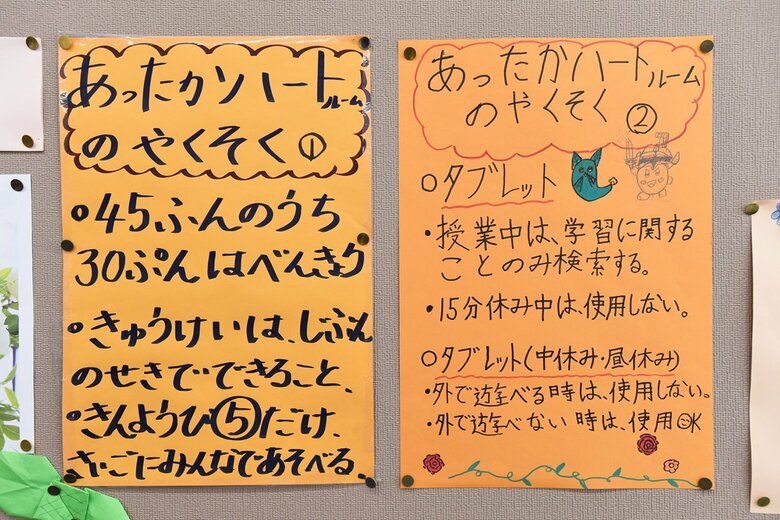 あったかハートルーム
のやくそく①
○45ふんのうち
30ぷんはべんきょう
・きゅうけいは、じぶん
のせきでできること、
・きんようび⑤だけ、
さいごにみんなであそべる。
あったかハートルーム
のやくそく②
○タブレット
・授業中は、学習に関する
ことのみ検索する。
・15分休み中は、使用しない。
○タブレット(中休み・昼休み)
・外で遊べる時は、使用しない。
・外で遊べない時は、使用OK